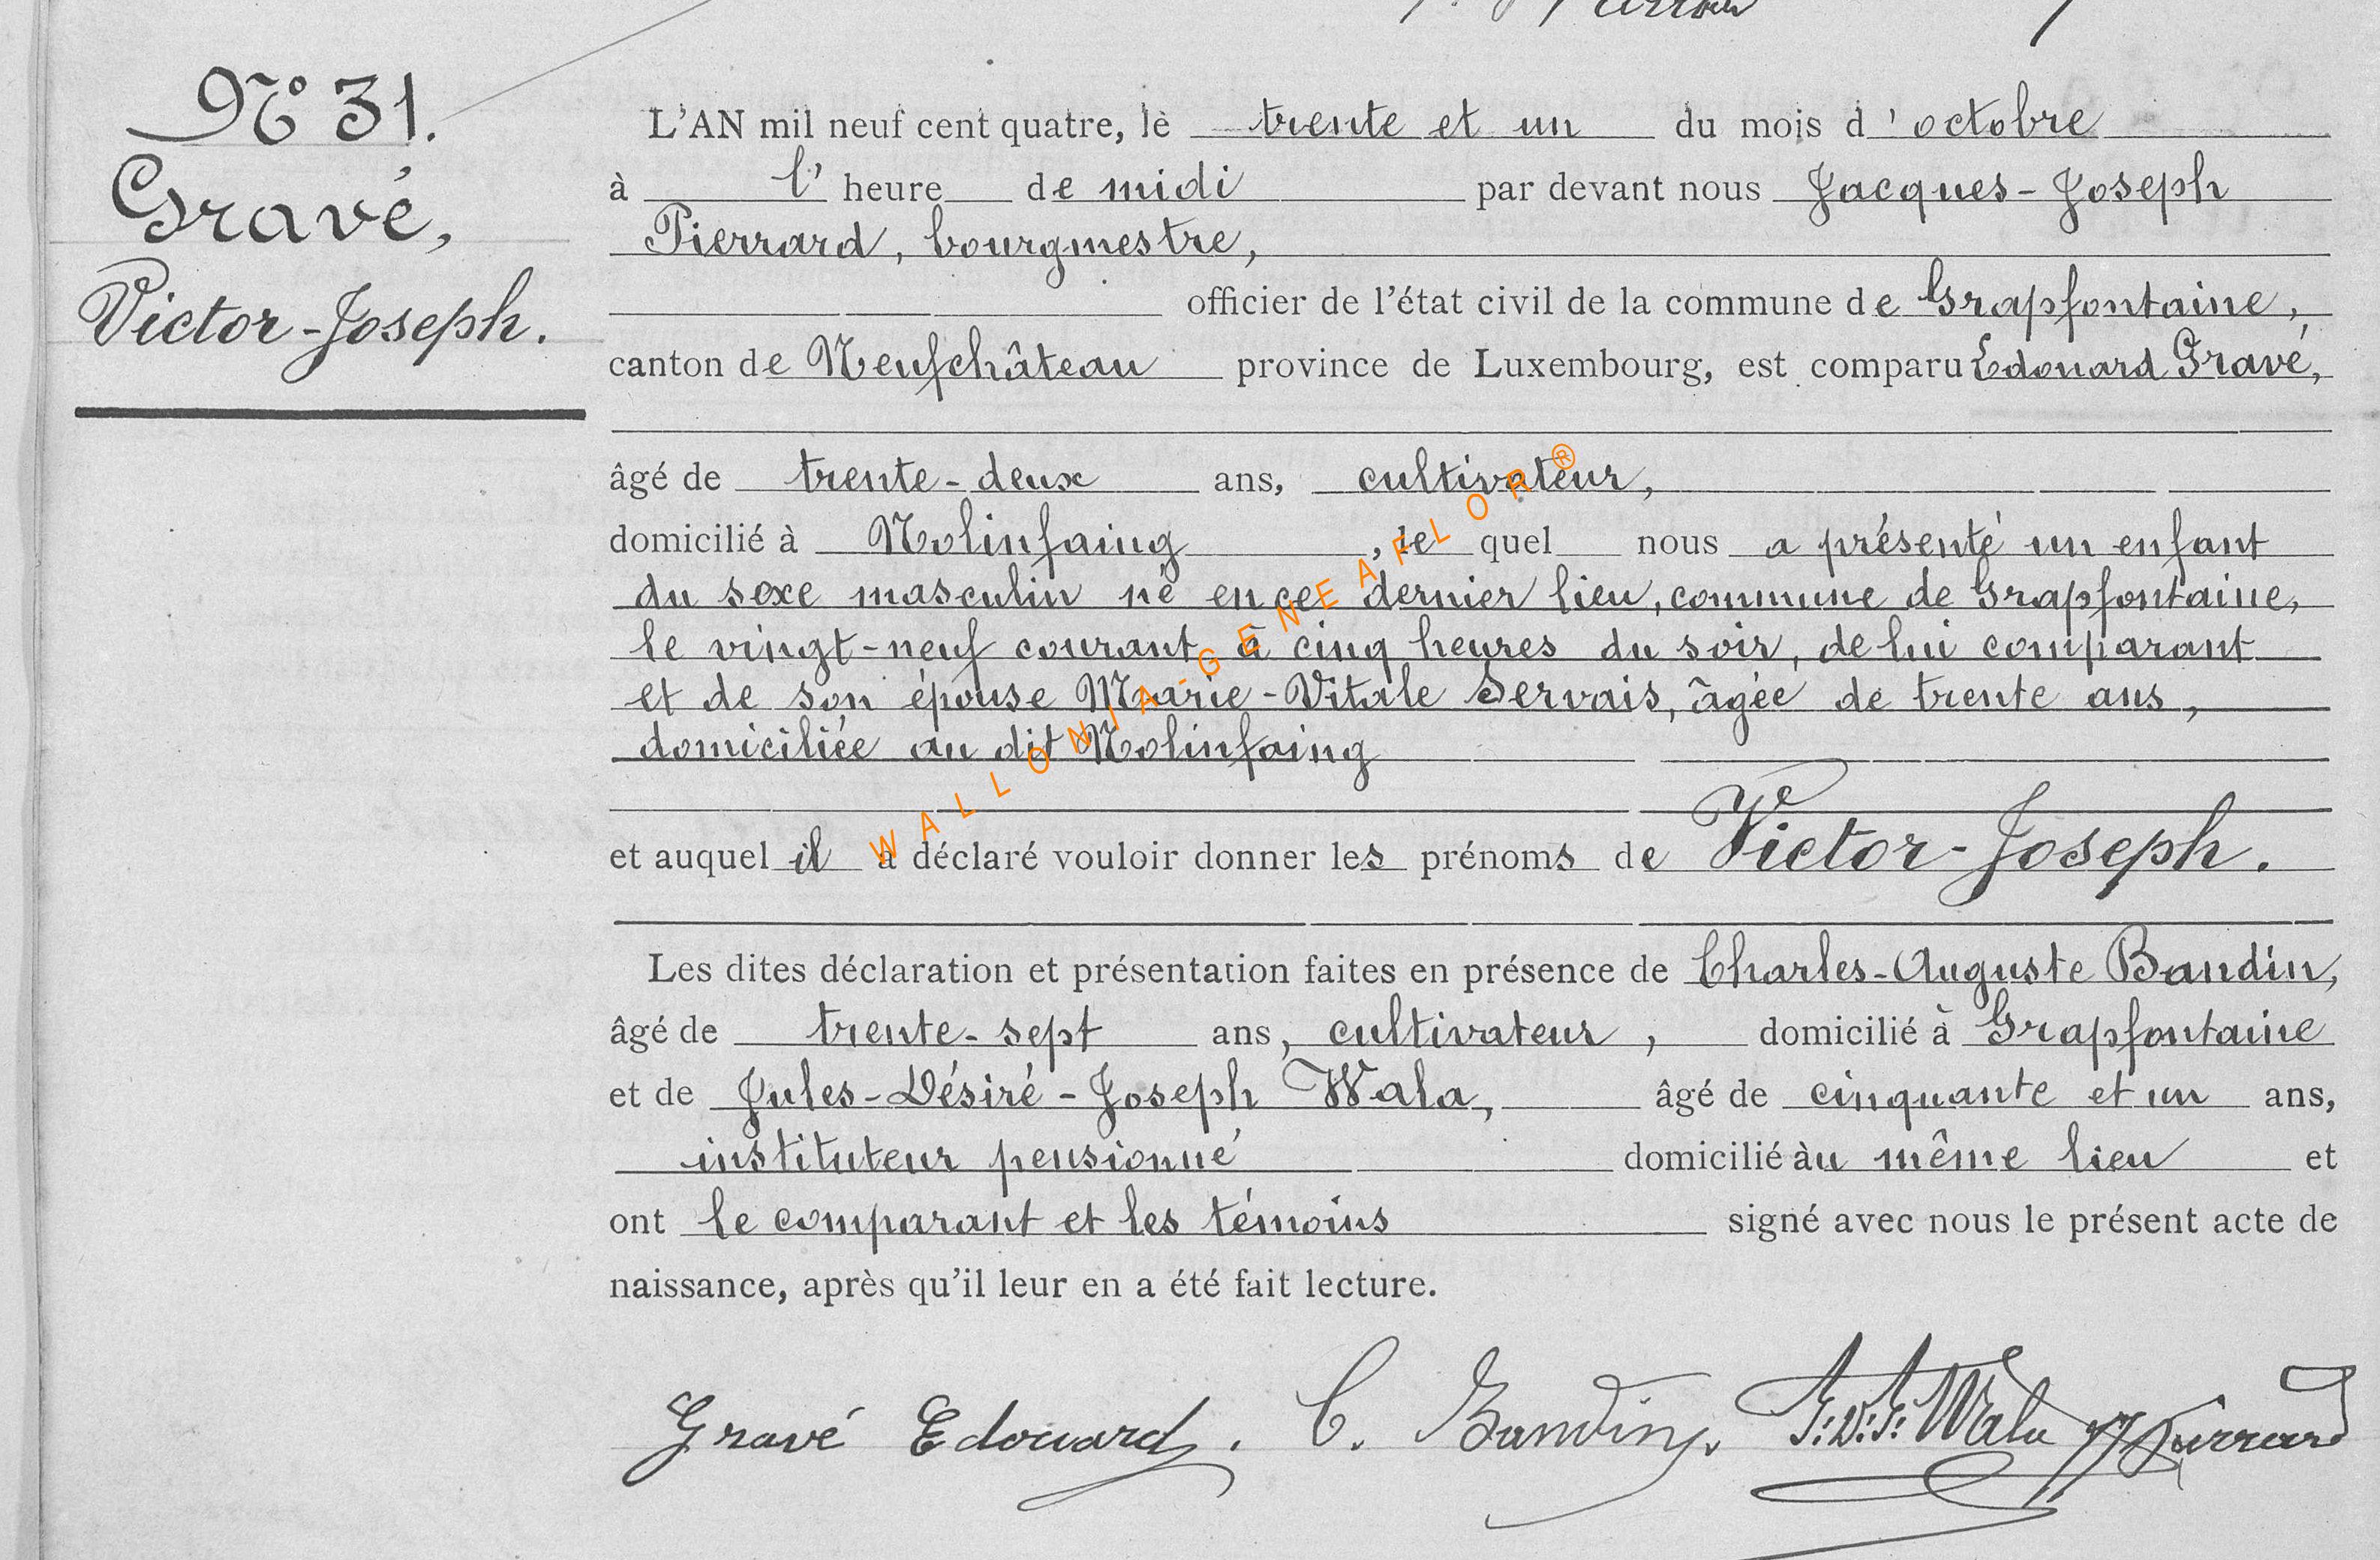 N° 31.
Gravé,
Victor-Joseph.
L'AN mil neuf cent quatre, le trente et un du mois d'octobre
à l'heure de midi par devant nous Jacques-Joseph
Pierrard, bourgmestre,
officier de l'état civil de la commune de Grapfontaine,
canton de Neufchâteau province de Luxembourg, est comparu Edouard Gravé,
âgé de trente-deux ans, cultivateur,
domicilié à Nolinfaing, lequel nous a présenté un enfant
du sexe masculin né en ce dernier lieu, commune de Grapfontaine,
le vingt-neuf courant, à cinq heures du soir, de lui comparant
et de son épouse Marie-Vitale Servais, âgée de trente ans,
domiciliée au dit Nolinfaing
et auquel il a déclaré vouloir donner les prénoms de Victor-Joseph.
Les dites déclaration et présentation faites en présence de Charles-Auguste Bandin,
âgé de trente-sept ans, cultivateur, domicilié à Grapfontaine
et de Jules-Désiré-Joseph Wala, âgé de cinquante et un ans,
instituteur pensionné domicilié àu même lieu et
ont le comparant et les témoins signé avec nous le présent acte de
naissance, après qu'il leur en a été fait lecture.
Gravé Edouard. C. Bandin. J.D.J. Wala JJPierrard
WALLONIA-GENEAFLOR®